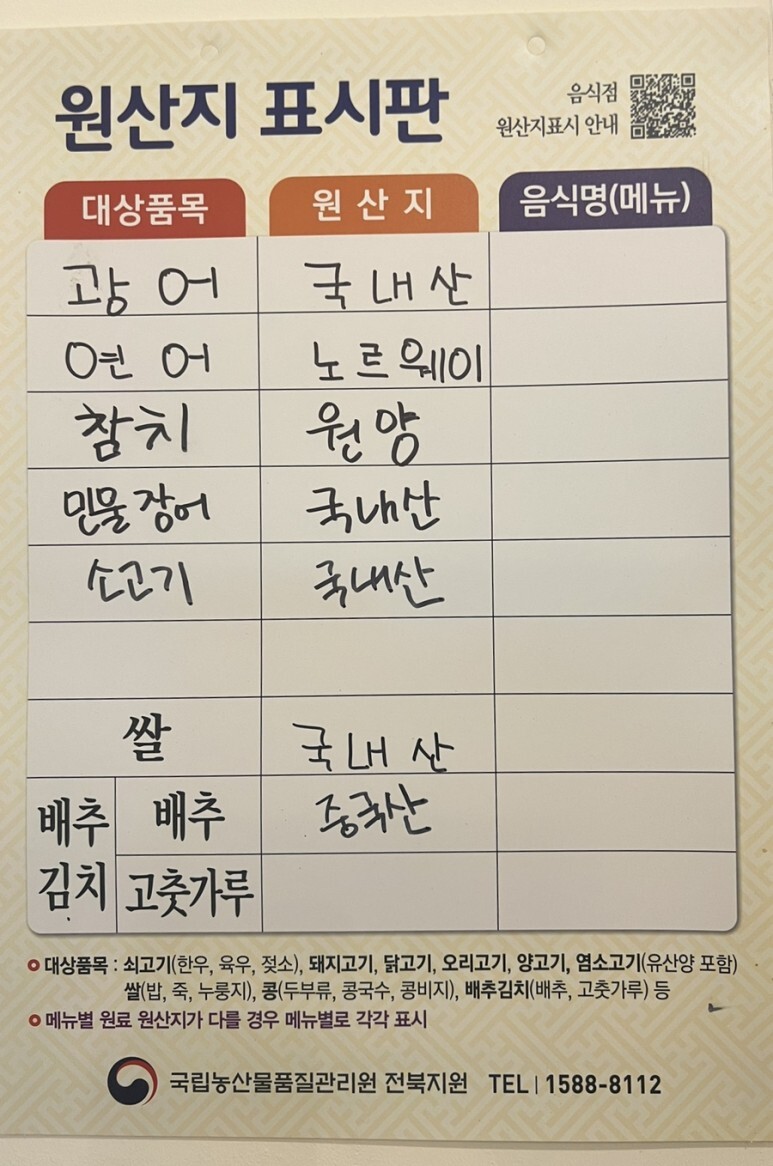 원산지 표시판
음식점
원산지표시 안내
대상품목 원산지 음식명(메뉴)
광어 국내산
연어 노르웨이
참치 원양
민물장어 국내산
소고기 국내산
쌀 국내산
배추김치 배추 중국산
고춧가루
대상품목 : 쇠고기(한우, 육우, 젖소), 돼지고기, 닭고기, 오리고기, 양고기, 염소고기(유산양 포함)
쌀(밥, 죽, 누룽지), 콩(두부류, 콩국수, 콩비지), 배추김치(배추, 고춧가루) 등
메뉴별 원료 원산지가 다를 경우 메뉴별로 각각 표시
국립농산물품질관리원 전북지원 TEL | 1588-8112